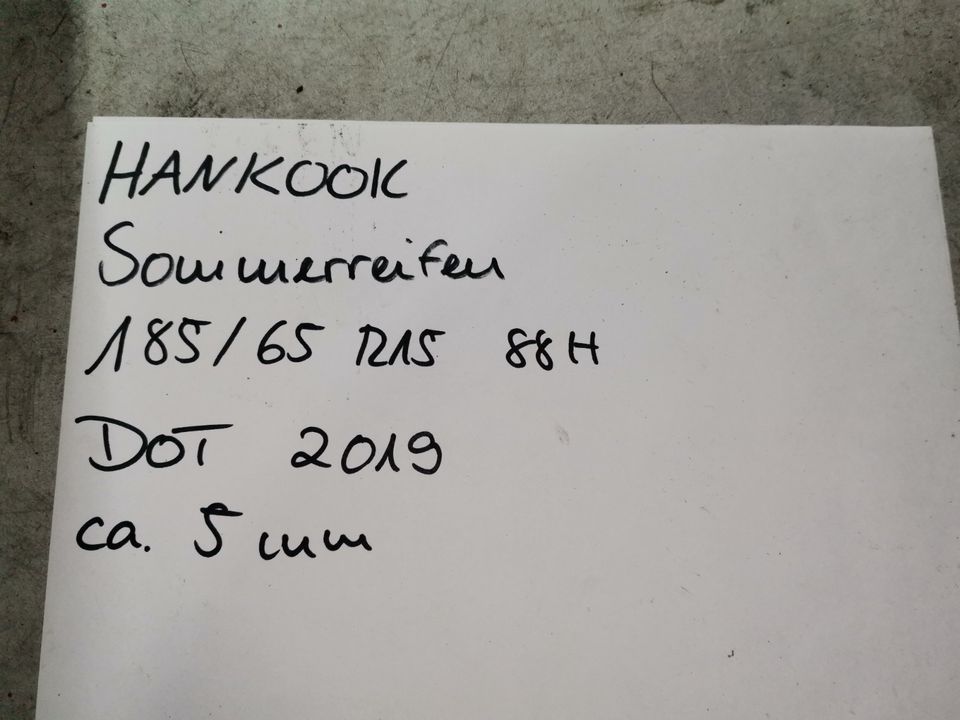 HANKOOK
Sommerreifen
185/65 R15 88H
DOT 2019
ca. 5 mm